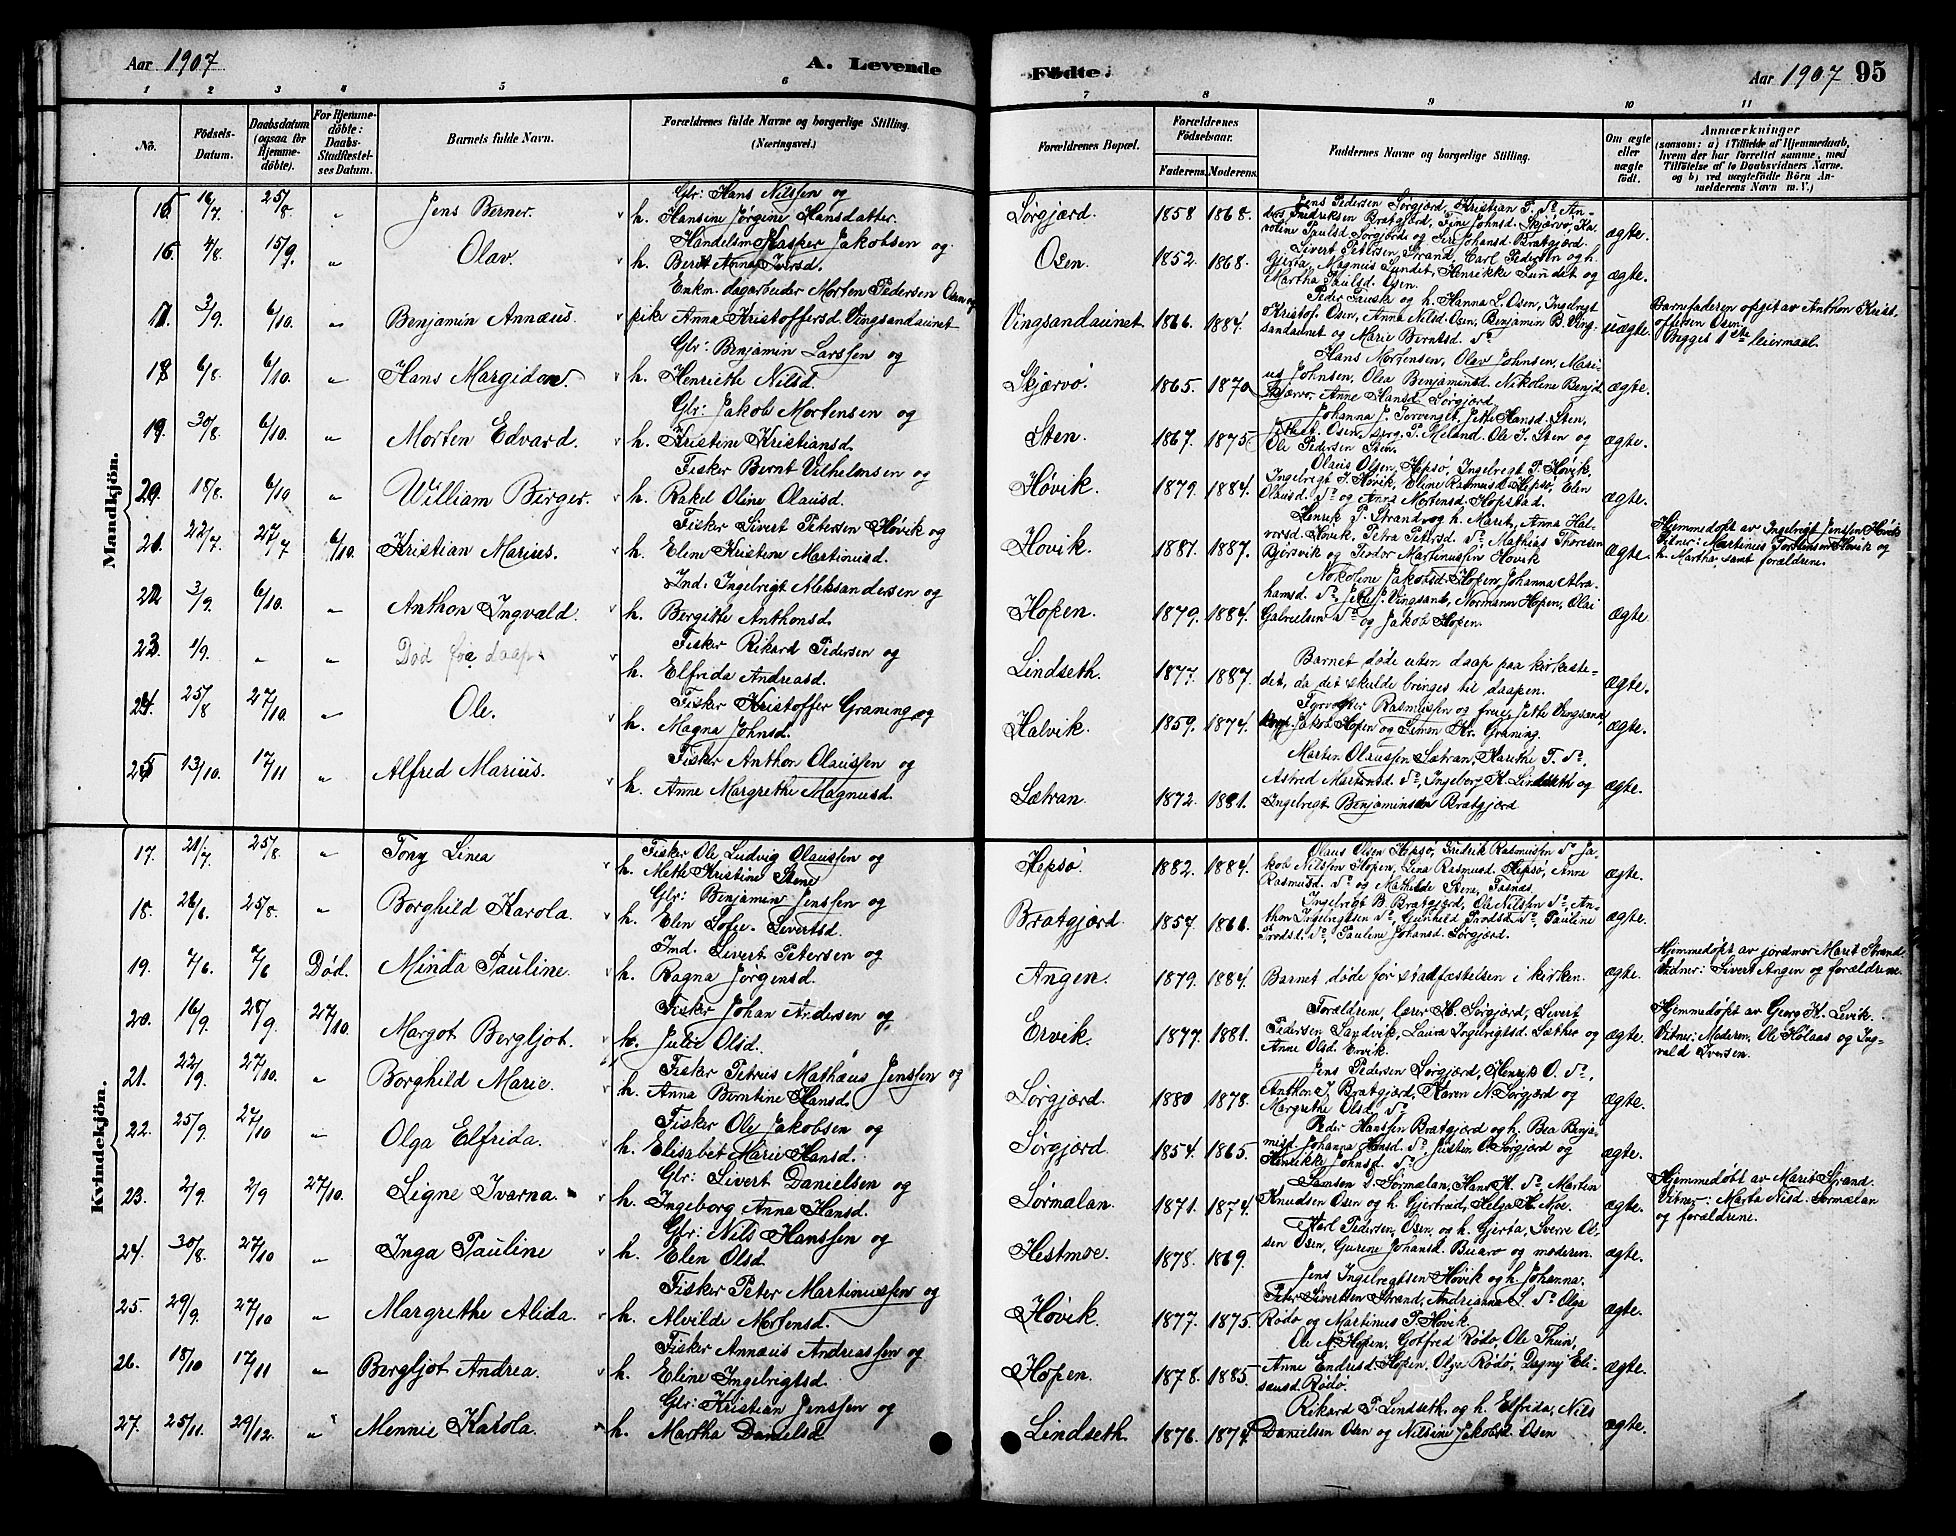 Aar 1907
A. Levende
Fødte.
Aar 1907 95
1 2 3 4 5 6 7 8 9 10 11
No.
Fødsels-Datum.
Daabsdatum (ogsaa for Hjemmedøbte).
For Hjemmedøbte: Daabs-Stadfæstelses Datum.
Barnets fulde Navn.
Forældrenes fulde Navne og borgerlige Stilling. (Næringsvei.)
Forældrenes Bopæl.
Forældrenes Fødselsaar.
Faderens. Moderens.
Faddernes Navne og borgerlige Stilling.
Om ægte eller uægte født.
Anmærkninger
(saasom: a) i Tilfælde af Hjemmedaab, hvem der har forrettet samme, med Tilføielse af to Daabsvidners Navne. og b) ved uægtefødte Børn Anmelderens Navn m. V.)
Mandkjön.
15. 16/7. 25/8. " Jens Berner. Gbr: Hans Nilssen og
h. Hansine Jørgine Hansdatter. Sørgjærd. 1858 1868. Jens Pedersen Sørgjærd, Kristian P. do, Anders Fredriksen Bratgjærd, Fine Johnsd. Skjærvø, Karoline Paulsd. Sørgjærd og Johansd. Bratgjærd. ægte.
16. 4/8. 15/9. " Olav. Handelsm. Kasper Jakobsen og
h. Berit Anna Iversd. Osen. 1852. 1868. Sivert Petersen Strand, Carl Pedersen og h. Gjerta, Magnus Sundet, Henrikke Sundet og Martha Paulsd. Osen. ægte.
17. 3/9. 6/10. " Benjamin Annæus. Enkm. dagarbeider Morten Pedersen Osen og
pike Anna Kristoffersd. Vingsandaunet Vingsandaunet 1866. 1884. Peder Fauska og h. Hanna L. Osen, Ingebrigt Kristof. Osen, Anna Nilsd. Osen, Benjamin B. Vingsandaunet og Marie Berntsd. do. uægte. Barnefaderen opgit av Anthon Kristoffersen Osen. Begges 1ste leiermaal.
18. 6/8. 6/10. " Hans Margidon. Gbr: Benjamin Larssen og
h. Henriette Nilsd. Skjærvø. 1865. 1870 Hans Mortensen, Olav Johnsen, Marius Johnsen, Olea Benjaminsd. Nikoline Benjd. Skjærvø, Anne Hansd. Sørgjærd. ægte.
19. 30/8. 6/10. " Morten Edvard. Gbr: Jakob Mortensen og
h. Kristine Kristiansd. Sten. 1867. 1875 Johanna J. Jethe Hansd. Sten, Osen, P. Meland, Ole J. Sten og Ole Pedersen Sten. ægte.
20. 18/8. 6/10 " William Birger. Fisker Bernt Vilhelmsen og
h. Rakel Oline Olausd. Høvik. 1879. 1884. Olaus Olsen, Hepsø, Ingebrigt P. Høvik, Ingebrigt J. Høvik, Eline Rasmusd. Hepsø, Elen Olausd. do og Anna Mortensd. Hopstad. ægte.
21. 22/7. 27/7 6/10. Kristian Marius. Fisker Sivert Petersen Høvik og
h. Eline Kristine Martinusd. Høvik. 1881. 1887. Henrik P. Strand og h. Marit, Anna Halvorsd. Høvik, Petra Petersd. do. Mathias Thoresen Bjørsvik og Tiodor Martinussen Høvik ægte. Hjemmedøpt av Ingebrigt Jenssen Høvik Vitner: Martinus Torstensen Høvik og h. Martha samt forældrene.
22. 3/9. 6/10. " Anthon Ingvald. Ind. Ingebrigt Aleksandersen og
h. Bergitte Anthonsd. Hopen. 1879. 1884. Nokoline Jakobsd. Hopen, Johanna Abrahamsd. do, Vingsand, Normann Hopen, Olai Gabrielsen do og Jakob Hopen. ægte.
23. 1/9. " " Død før daap. Fisker Rikard Pedersen og
h. Elfrida Andreasd. Lindseth. 1877. 1887. Barnet døde uten daap paa kirkestedet, da det skulde bringes til daapen. ægte.
24. 25/8 27/10. " Ole. Fisker Kristoffer Graning og
h. Magna Johnsd. Halvik. 1859. 1874. Fyrvokter Rasmussen og frue, Jethe Vingsand, Jakob Hopen og Simon Kr. Graning. ægte.
25 13/10. 17/11 " Alfred Marius. Fisker Anthon Olaussen og
h. Anne Margrethe Magnusd. Sætran. 1872. 1881. Marten Olaussen Sætran, Marethe T. do. Astrid Martinsd. do, Ingeborg K. Lindseth og Ingebrigt Benjaminsen Bratgjærd ægte.
Kvindekjön.
17. 21/7. 25/8. " Tony Linea Fisker Ole Ludvig Olaussen og
h. Mette Kristine Stene Hepsø. 1882. 1884. Olaus Olsen Hepsø, Fredrik Rasmussen do Jakob Nilssen Hopen, Lina Rasmusd. Hepsø, Anne Rasmusd. do og Mathilde Stene, Fasnæs. ægte.
18. 26/6. 25/8. " Borghild Karola. Gbr: Benjamin Jenssen og
h. Elen Sofie Sivertsd. Bratgjærd. 1857 1866. Ingebrigt B. Bratgjærd, Ole Nilssen do, Anthon Ingebrigtsen do, Gunhild do. Pauline do, Pauline Johansd. Sørgjærd. ægte.
19. 7/6. 7/6 Død. Minda Pauline. Ind. Sivert Petersen og
h. Ragna Jørgensd. Angen. 1879. 1884. Barnet døde før stadfæstelsen i kirken. ægte. Hjemmedøpt av jordmor Marit Strand. Vidner: Sivert Angen og forældrene.
20. 16/9. 28/9. 27/10. Margot Bergljot. Fisker Johan Andersen og
h. Julie Olsd. Ervik. 1877. 1881. Forældrene, lærer H. Sørgjærd, Sivert Pedersen Sandvik, Laura Ingebrigtsd. Sætter og Anne Olsd. Ervik. ægte. Hjemmedøpt av Georg K. Levik. Vitner: Moderen, Ole Holaas og Ingvald Iversen.
21. 22/9. 27/10. " Borghild Marie. Fisker Petrus Mathæus Jenssen og
h. Anna Berntine Hansd. Sørgjærd. 1880 1878. Jens Pedersen Sørgjærd, Henrik O. do, Anthon J. Bratgjærd, Karen N. Sørgjærd og Margrethe Olsd. do. ægte.
22. 25/9. 27/10 " Olga Elfrida. Fisker Ole Jakobsen og
h. Elisabet Marie Hansd. Sørgjærd 1854. 1865. Peder Hanssen Bratgjærd og h. Bea Benjamisd. Johanna Hansd. do. Justin O. Sørgjærd og Henrikke Johnsd. do. ægte.
23. 2/9. 2/9 27/10. Signe Ivarna. Gbr: Sivert Danielsen og
h. Ingeborg Anna Hansd. Sørmalan. 1871. 1874. D. Sørmalan, Hans H. do, Morten Knudsen Osen og h. Gjertrud, Helga H. Moe. ægte. Hjemmedøbt av Marit Strand. Vitner: Marta Nilsd. Sørmælan og forældrene.
24. 30/8. 27/10 " Inga Pauline Gbr: Nils Hanssen og
h. Elen Olsd. Hestmoe. 1878. 1869. Karl Pedersen, Osen, og h. Gjerta, Sverre Olsen Osen, Gurine Johansd. Buarø og moderen. ægte.
25. 29/9. 27/10 " Margrethe Alida. Fisker Peter Martinussen og
h. Alvilde Mortensd. Høvik. 1877. 1875. Jens Ingebrigtsen Høvik og h. Johanna. Peter Sivertsen Strand, Andrianna L. do Olga Rødø og Martinus P. Høvik. ægte.
26. 18/10 17/11 " Bergljot Andrea. Fisker Annæus Andreassen og
h. Eline Ingebrigtsd. Hopen. 1878. 1885. Ole M. Hopen, Gotfred Rødø, Ole Thun, Anne Endresd. Hopen, Olga Rødø, Dagny Elisæusd. Rødø. ægte.
27. 25/11. 29/12. " Mennie Karola. Gbr: Kristian Jenssen og
h. Martha Danielsd Lindseth. 1876. 1874 Rikard P. Lindseth og h. Elfrida, Nils Danielsen Osen og Nilsine Jakobsd. Osen ægte.